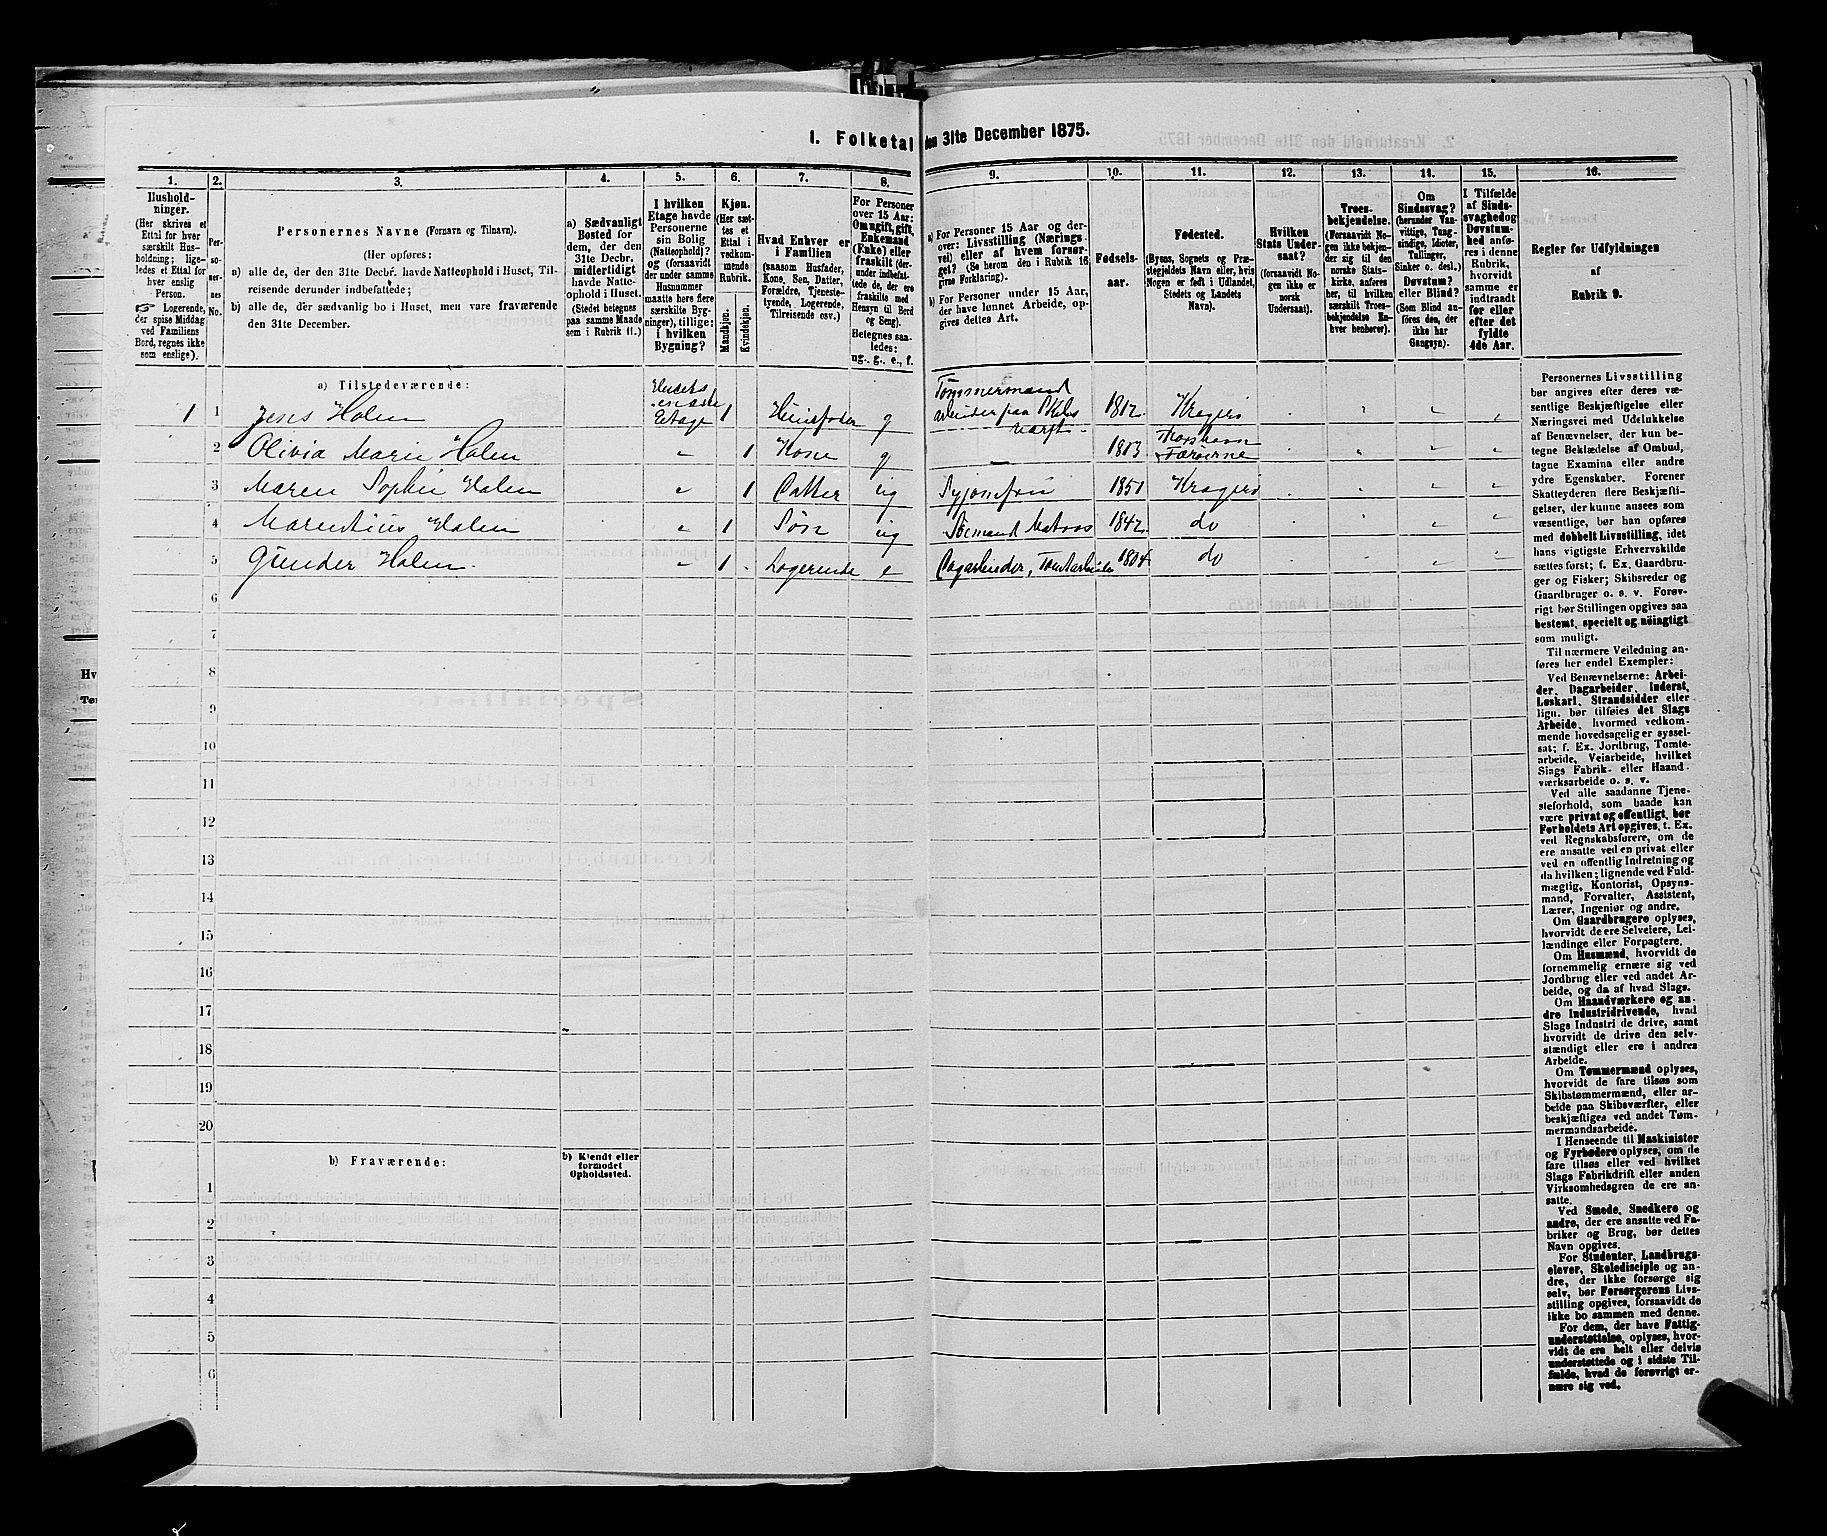 1. Folketal den 31te December 1875.
1. 2. 3. 4. 5. 6. 7. 8. 9. 10. 11. 12. 13. 14. 15. 16.
Hushold-
ninger.
(Her skrives et
Ettal for hver
særskilt Hus-
holdning; lige-
ledes et Ettal for
hver enslig
Person.
☞ Logerende,
der spise Middag
ved Familiens
Bord, regnes ikke
som enslige).
Per-
so-
ner-
nes
No.
Personernes Navne (Fornavn og Tilnavn).
(Her opføres:
a) alle de, der den 31te Decbr. havde Natteophold i Huset, Til-
reisende derunder indbefattede;
b) alle de, der sædvanlig bo i Huset, men vare fraværende
den 31te December.
a) Sædvanligt
Bosted for
dem, der den
31te Decbr.
midlertidigt
havde Natte-
ophold i Huset.
(Stedst betegnes
paa samme Maade
som i Rubrik 11.)
I hvilken
Etage havde
Personerne
sin Bolig
(Natteophold)?
og (forsaavidt
der under samme
Husnummer
maatte høre flere
særskilte Byg-
ninger), tillige:
i hvilken
Bygning?
Kjøn.
(Her sæt-
tes et
Ettal i
vedkom-
mende
Rubrik.
Mandkjøn.
Kvindekjøn.
Hvad Enhver er
i Familien
(saasom Husfader,
Kone, Søn, Datter,
Forældre, Tjeneste-
tyende, Logerende,
Tilreisende osv.)
For Personer
over 15 Aar:
Om ugift, gift,
Enkemand
(Enke) eller
fraskilt (der-
under indbefat-
tede de, der ere
fraskilte med
Hensyn til Bord
og Seng).
Betegnes saa-
ledes:
ug., g., e., f.
a) For Personer 15 Aar og der-
over: Livsstilling (Nærings-
vei) eller af hvem forsør-
get? (Se herom den i Rubrik 16
givne Forklaring).
b) For Personer under 15 Aar,
der have lønnet Arbeide, op-
gives dettes Art.
Fødsels-
aar.
Fødested.
(Byens, Sognets og Præ-
stegjeldets Navn eller, hvis
Nogen er født i Udlandet,
Stedets og Landets
Navn).
Hvilken
Stats Under-
saat?
(forsaavidt No-
gen ikke er
norsk
Undersaat).
Troes-
bekjendelse.
(Forsaavidt No-
gen ikke bekjen-
der sig til den
norske Stats-
kirke, anføres
her, til hvilken
særskilt Troes-
bekjendelse En-
hver henhører).
Om
Sindssvag?
(herunder Van-
vittige, Tung-
sindige, Idioter,
Tullinger,
Sinker o. desl.)
Døvstum?
eller Blind?
(Som Blind an-
føres den, der
ikke har
Gangsyn).
I Tilfælde
af Sinds-
svaghed og
Døvstum-
hed anfø-
res i denne
Rubrik,
hvorvidt
samme er
indtraadt
før eller
efter det
fyldte
4de Aar.
Regler for Udfyldningen
af
Rubrik 9.
a) Tilstedeværende:
1 1 Jens Holen Husets Etage 1 Huusfader g Tømmermand arbeider paa 1812. Kragerø
2 Olivia Marie Holen " 1 Kone g 1813 Thorshavn Færøerne
3 Maren Sophie Holen " 1 Datter ug Syjomfru 1851 Kragerø
4 Marentius Holen " 1 Søn ug Sømand Matros 1842 do
5 Gunder Holen. " 1 Logerende e Dagarbeider, Tomtarbeide 1804 do
6
7
8
9
10
11
12
13
14
15
16
17
18
19
20
b) Fraværende:
b) Kjendt eller
formodet
Opholdssted.
1
2
3
4
5
6
Personernes Livsstilling
bør angives efter deres væ-
sentlige Beskjæftigelse eller
Næringsvei med Udelukkelse
af Benævnelser, der kun be-
tegne Beklædelse af Ombud,
tagne Examina eller andre
ydre Egenskaber. Forener
Skatteyderen flere Beskjæfti-
gelser, der kunne ansees som
væsentlige, bør han opføres
med dobbelt Livsstilling, idet
hans vigtigste Erhvervskilde
sættes først; f. Ex. Gaardbru-
ger og Fisker; Skibsreder og
Gaardbruger o. s. v. Forøv-
rigt bør Stillingen opgives saa
bestemt, specielt og nøiagtigt
som muligt.
Til nærmere Veiledning an-
føres her endel Exempler:
Ved Benævnelserne: Arbei-
der, Dagarbeider, Inderst,
Løskarl, Strandsidder eller
lign. bør tilføies det Slags
Arbeide, hvormed vedkom-
mende hovedsagelig er syssel-
sat; f. Ex. Jordbrug, Tomte-
arbeide, Veiarbeide, hvilket
Slags Fabrik- eller Haand-
værksarbeide o. s. v.
Ved alle saadanne Tjene-
steforhold, som baade kan
være privat og offentligt, bør
Forholdets Art opgives, t. Ex.
ved Regnskabsførere, om de
ere ansatte ved en privat eller
ved en offentlig Indretning og
da hvilken; lignende ved Fuld-
mægtig, Kontorist, Opsyns-
mand, Forvalter, Assistent,
Lærer, Ingeniør og andre.
Om Gaardbrugere oplyses,
hvorvidt de ere Selveiere, Lei-
lændinge eller Forpagtere.
Om Husmænd, hvorvidt de
fornemmelig ernære sig ved
Jordbrug eller ved andet Ar-
beide, og da af hvad Slags.
Om Haandværkere og an-
dre Industridrivende, hvad
Slags Industri de drive, samt
hvorvidt de drive den selv-
stændigt eller ere i andres
Arbeide.
Om Tømmermænd oplyses,
hvorvidt de fare tilsøs som
Skibstømmermænd, eller ar-
beide paa Skibsværfter, eller
beskjæftiges ved andet Tøm-
mermandsarbeide.
I Henseende til Maskinister
og Fyrbødere oplyses, om de
fare tilsøs eller ved hvilket
Slags Fabrikdrift eller anden
Virksomhedsgren de ere an-
satte.
Ved Smede, Snedkere og
andre, der ere ansatte ved Fa-
briker og Brug, bør dettes
Navn opgives.
For Studenter, Landbrugs-
elever, Skoledisciple og an-
dre, der ikke forsørge sig
selv, bør Forsørgerens Livs-
stilling opgives, forsaavidt de
ikke bo sammen med denne.
For dem, der have Fattig-
understøttelse, oplyses, hvor-
vidt de ere helt eller delvis
understøttede og i sidste Til-
fælde, hvad de forøvrigt er-
nære sig ved.